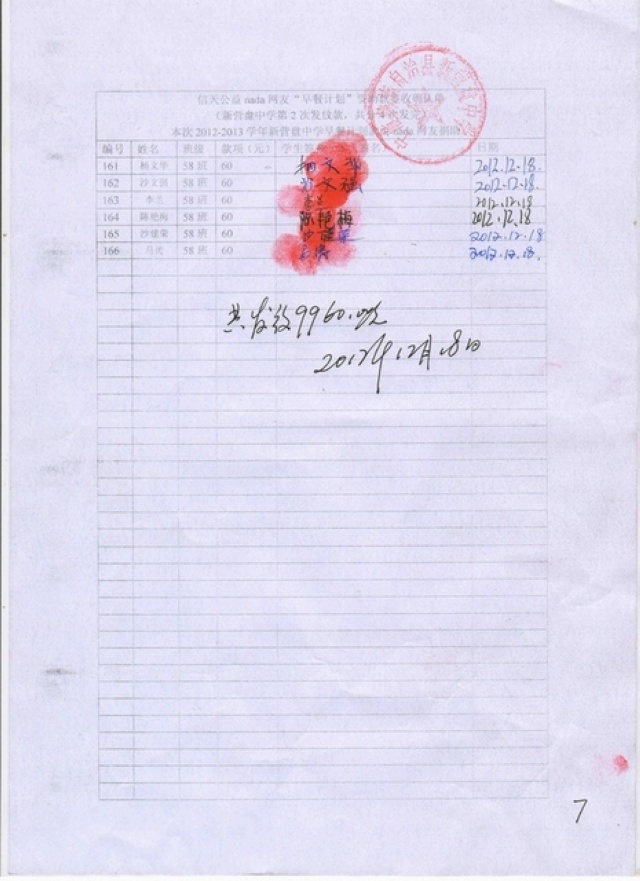 信天公益 nada 网友“早餐计划”资助款签收确认单
(新营盘中学第 2 次发放款,共分 次发完)
本次 2012-2013 学年新营盘中学早餐计划 nada 网友捐助
编号 姓名 班级 款项(元) 学生签 名) 日期
161 杨文华 58 班 60 杨文华 2012.12.18.
162 沙文强 58 班 60 文强 2012.12.18.
163 李兰 58 班 60 李兰 2012.12.18.
164 陈艳梅 58 班 60 陈艳梅 2012.12.18
165 沙建荣 58 班 60 沙建荣 2012.12.18
166 马 58 班 60 2012.12.18.
共发放9960.元
2012年12月18日
自治县新营盘中学
7